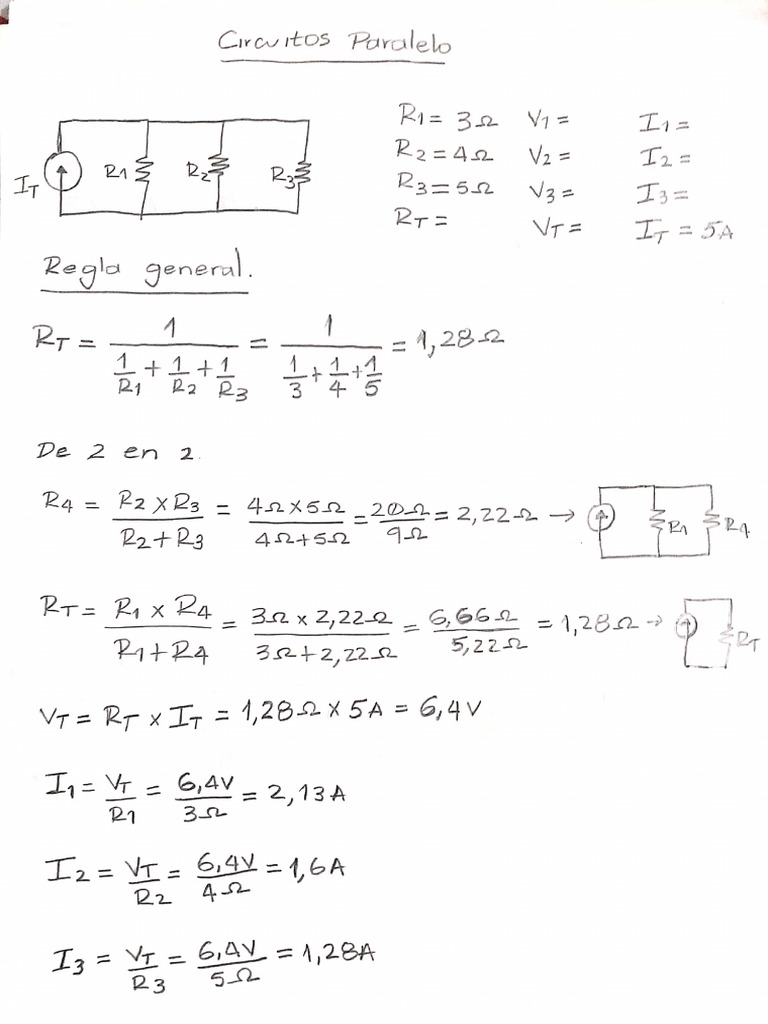 Circuitos Paralelo
R1 = 3Ω V1 = I1 =
R2 = 4Ω V2 = I2 =
R3 = 5Ω V3 = I3 =
RT = VT = IT = 5A
IT R1 R2 R3
Regla general.
RT = 1 / (1/R1 + 1/R2 + 1/R3) = 1 / (1/3 + 1/4 + 1/5) = 1,28Ω
De 2 en 2.
R4 = R2 x R3 / R2 + R3 = 4Ω x 5Ω / 4Ω + 5Ω = 20Ω / 9Ω = 2,22Ω → R1 R4
RT = R1 x R4 / R1 + R4 = 3Ω x 2,22Ω / 3Ω + 2,22Ω = 6,66Ω / 5,22Ω = 1,28Ω → RT
VT = RT x IT = 1,28Ω x 5A = 6,4V
I1 = VT / R1 = 6,4V / 3Ω = 2,13A
I2 = VT / R2 = 6,4V / 4Ω = 1,6A
I3 = VT / R3 = 6,4V / 5Ω = 1,28A